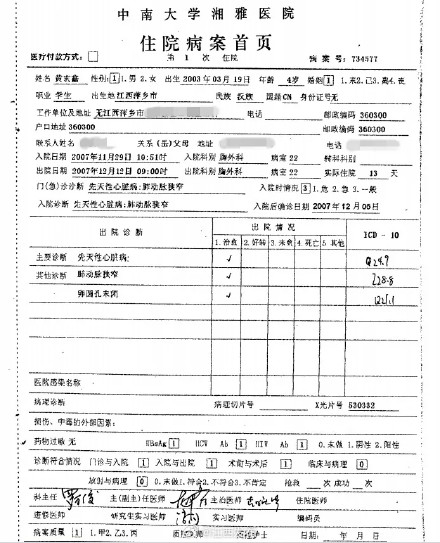 中南大学湘雅医院
住院病案首页
医疗付款方式: 第 1 次 住院 病案号: 734577
姓名 性别: 1 1.男 2.女 出生 2003年03月19日 年龄 4岁 婚姻 1 1.未 2.已 3.离 4.丧
职业 学生 出生地 江西萍乡市 民族 汉族 国籍 CN 身份证号 无
工作单位及地址 无江西萍乡市 电话 邮政编码 360300
户口地址 360300 邮政编码 360300
联系人姓名 关系(系)父母 地址 电话
入院日期 2007年11月29日 10:51时 入院科别 胸外科 病室 22 转科科别
出院日期 2007年12月12日 09:00时 出院科别 胸外科 病室 22 实际住院 13 天
门(急)诊诊断 先天性心脏病:肺动脉狭窄 入院时情况 3 1.危 2.急 3.一般
入院诊断 先天性心脏病:肺动脉狭窄 入院后确诊日期 2007年12月05日
出院诊断 出院情况 ICD-10
1.治愈 2.好转 3.未愈 4.死亡 5.其他
主要诊断 先天性心脏病: ✓
其他诊断 肺动脉狭窄 ✓
卵圆孔未闭 ✓
医院感染名称
病理诊断 病理切片号 X光片号 530332
损伤、中毒的外部因素:
药物过敏 无 HBsAg 1 HCV Ab 1 HIV Ab 1 0.未做 1.阴性 2.阳性
诊断符合情况 门诊与入院 1 入院与出院 1 术前与术后 1 临床与病理 0
放射与病理 0 0.未做 1.符合 2.不符合 3.不肯定 抢救 次 成功 次
科主任 主(副主)任医师 主治医师 住院医师
进修医师 研究生实习医师 实习医师 编码员
病案质量 1 1.甲 2.乙 3.丙 质控医师 质控护士 日期: 年 月 日